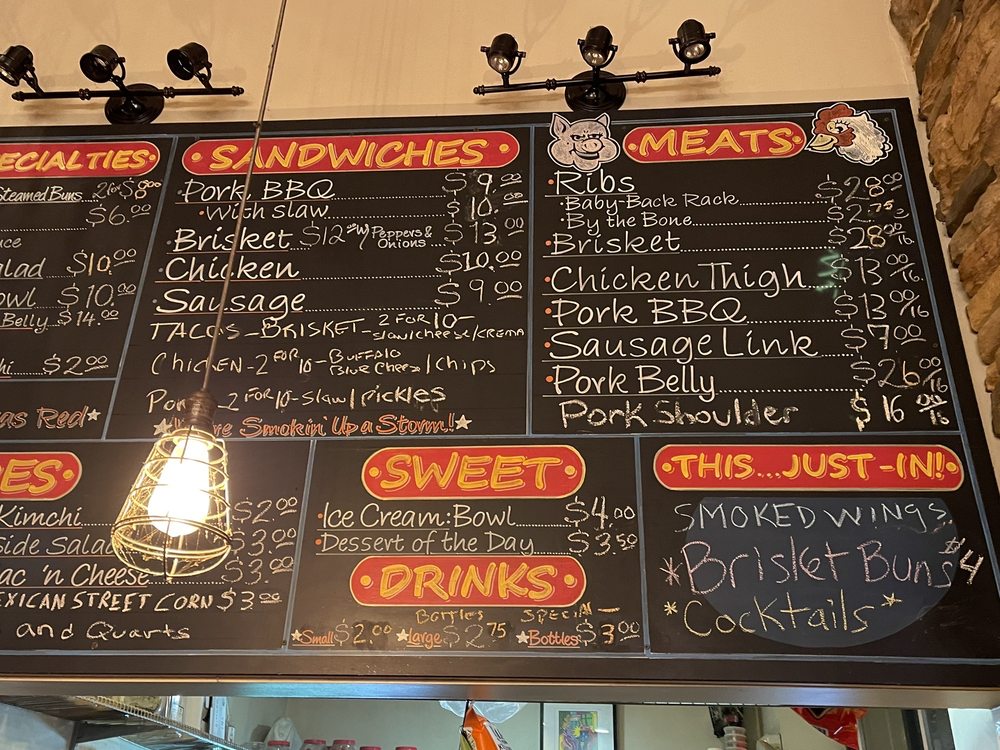 ECIALTIES
Steamed Buns 2 for $8.00
$6.00
uce
alad $10.00
owl $10.00
Belly $14.00
hi $2.00
as Red
SANDWICHES
Pork BBQ $9.00
With slaw $10.00
Brisket $12 W/ Peppers & Onions $13.00
Chicken $10.00
Sausage $9.00
TACOS - BRISKET - 2 FOR 10 - slaw/cheese/CREMA
Chicken - 2 FOR 10 - BUFFALO Blue Cheese/Chips
2 FOR 10 - Slaw/Pickles
re Smokin' Up a Storm!
MEATS
Ribs
Baby-Back Rack $28.00
By the Bone $2.75
Brisket $28.00/lb.
Chicken Thigh $13.00/lb
Pork BBQ $13.00/lb
Sausage Link $7.00
Pork Belly $26.00/lb
Pork Shoulder $16.00/lb
ES
Kimchi $2.00
Side Salad $3.00
ac 'n Cheese $3.00
EXICAN STREET CORN $3.00
and Quarts
SWEET
Ice Cream: Bowl $4.00
Dessert of the Day $3.50
DRINKS
Bottles SPECIAL
Small $2.00 Large $2.75 Bottles $3.00
THIS...JUST-IN!
SMOKED WINGS
*Brisket Buns $4
*Cocktails*